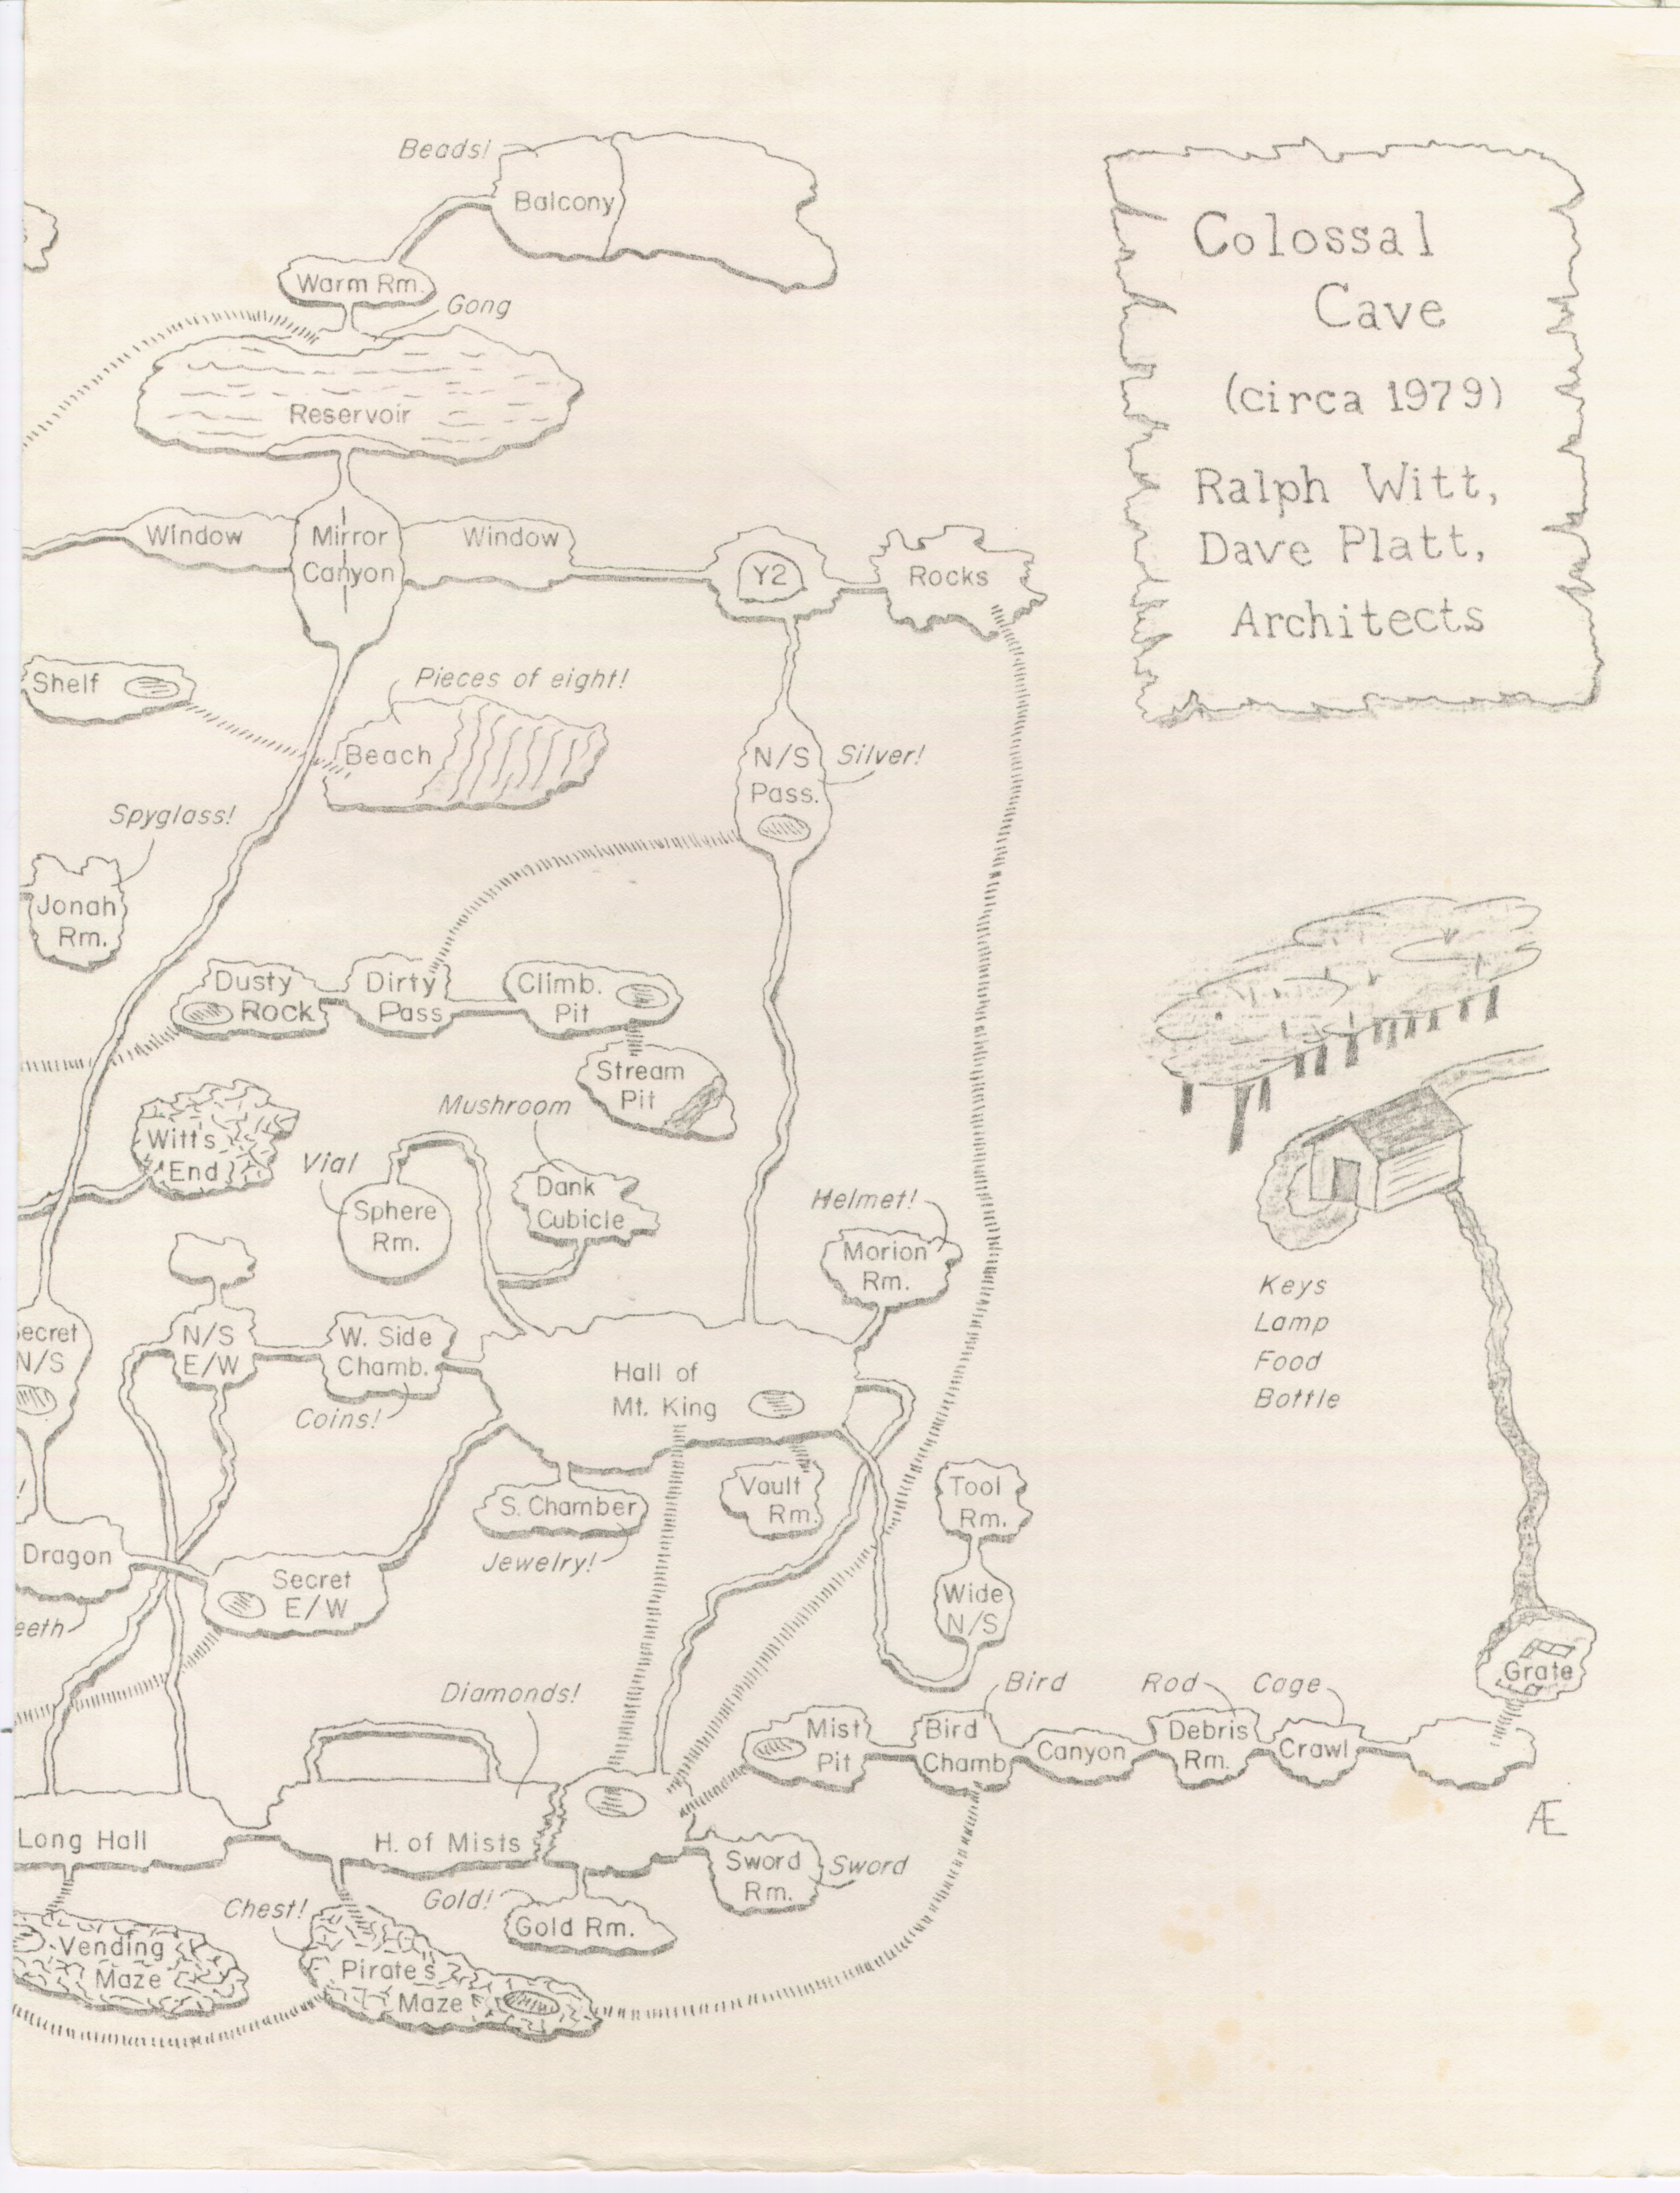 Beads!
Balcony
Warm Rm.
Gong
Reservoir
Window
Mirror
Canyon
Window
Y2
Rocks
Colossal
Cave
(circa 1979)
Ralph Witt,
Dave Platt,
Architects
Shelf
Pieces of eight!
Beach
N/S
Pass.
Silver!
Spyglass!
Jonah
Rm.
Dusty
Rock
Dirty
Pass
Climb.
Pit
Stream
Pit
Mushroom
Witt's
End
Vial
Sphere
Rm.
Dank
Cubicle
Helmet!
Morion
Rm.
Keys
Lamp
Food
Bottle
ecret
N/S
N/S
E/W
W. Side
Chamb.
Coins!
Hall of
Mt. King
S. Chamber
Jewelry!
Vault
Rm.
Tool
Rm.
Wide
N/S
!
Dragon
eeth
Secret
E/W
Grate
Diamonds!
Mist
Pit
Bird
Bird
Chamb
Canyon
Rod
Debris
Rm.
Cage
Crawl
Æ
Long Hall
H. of Mists
Sword
Rm.
Sword
Gold!
Gold Rm.
Chest!
Vending
Maze
Pirate's
Maze